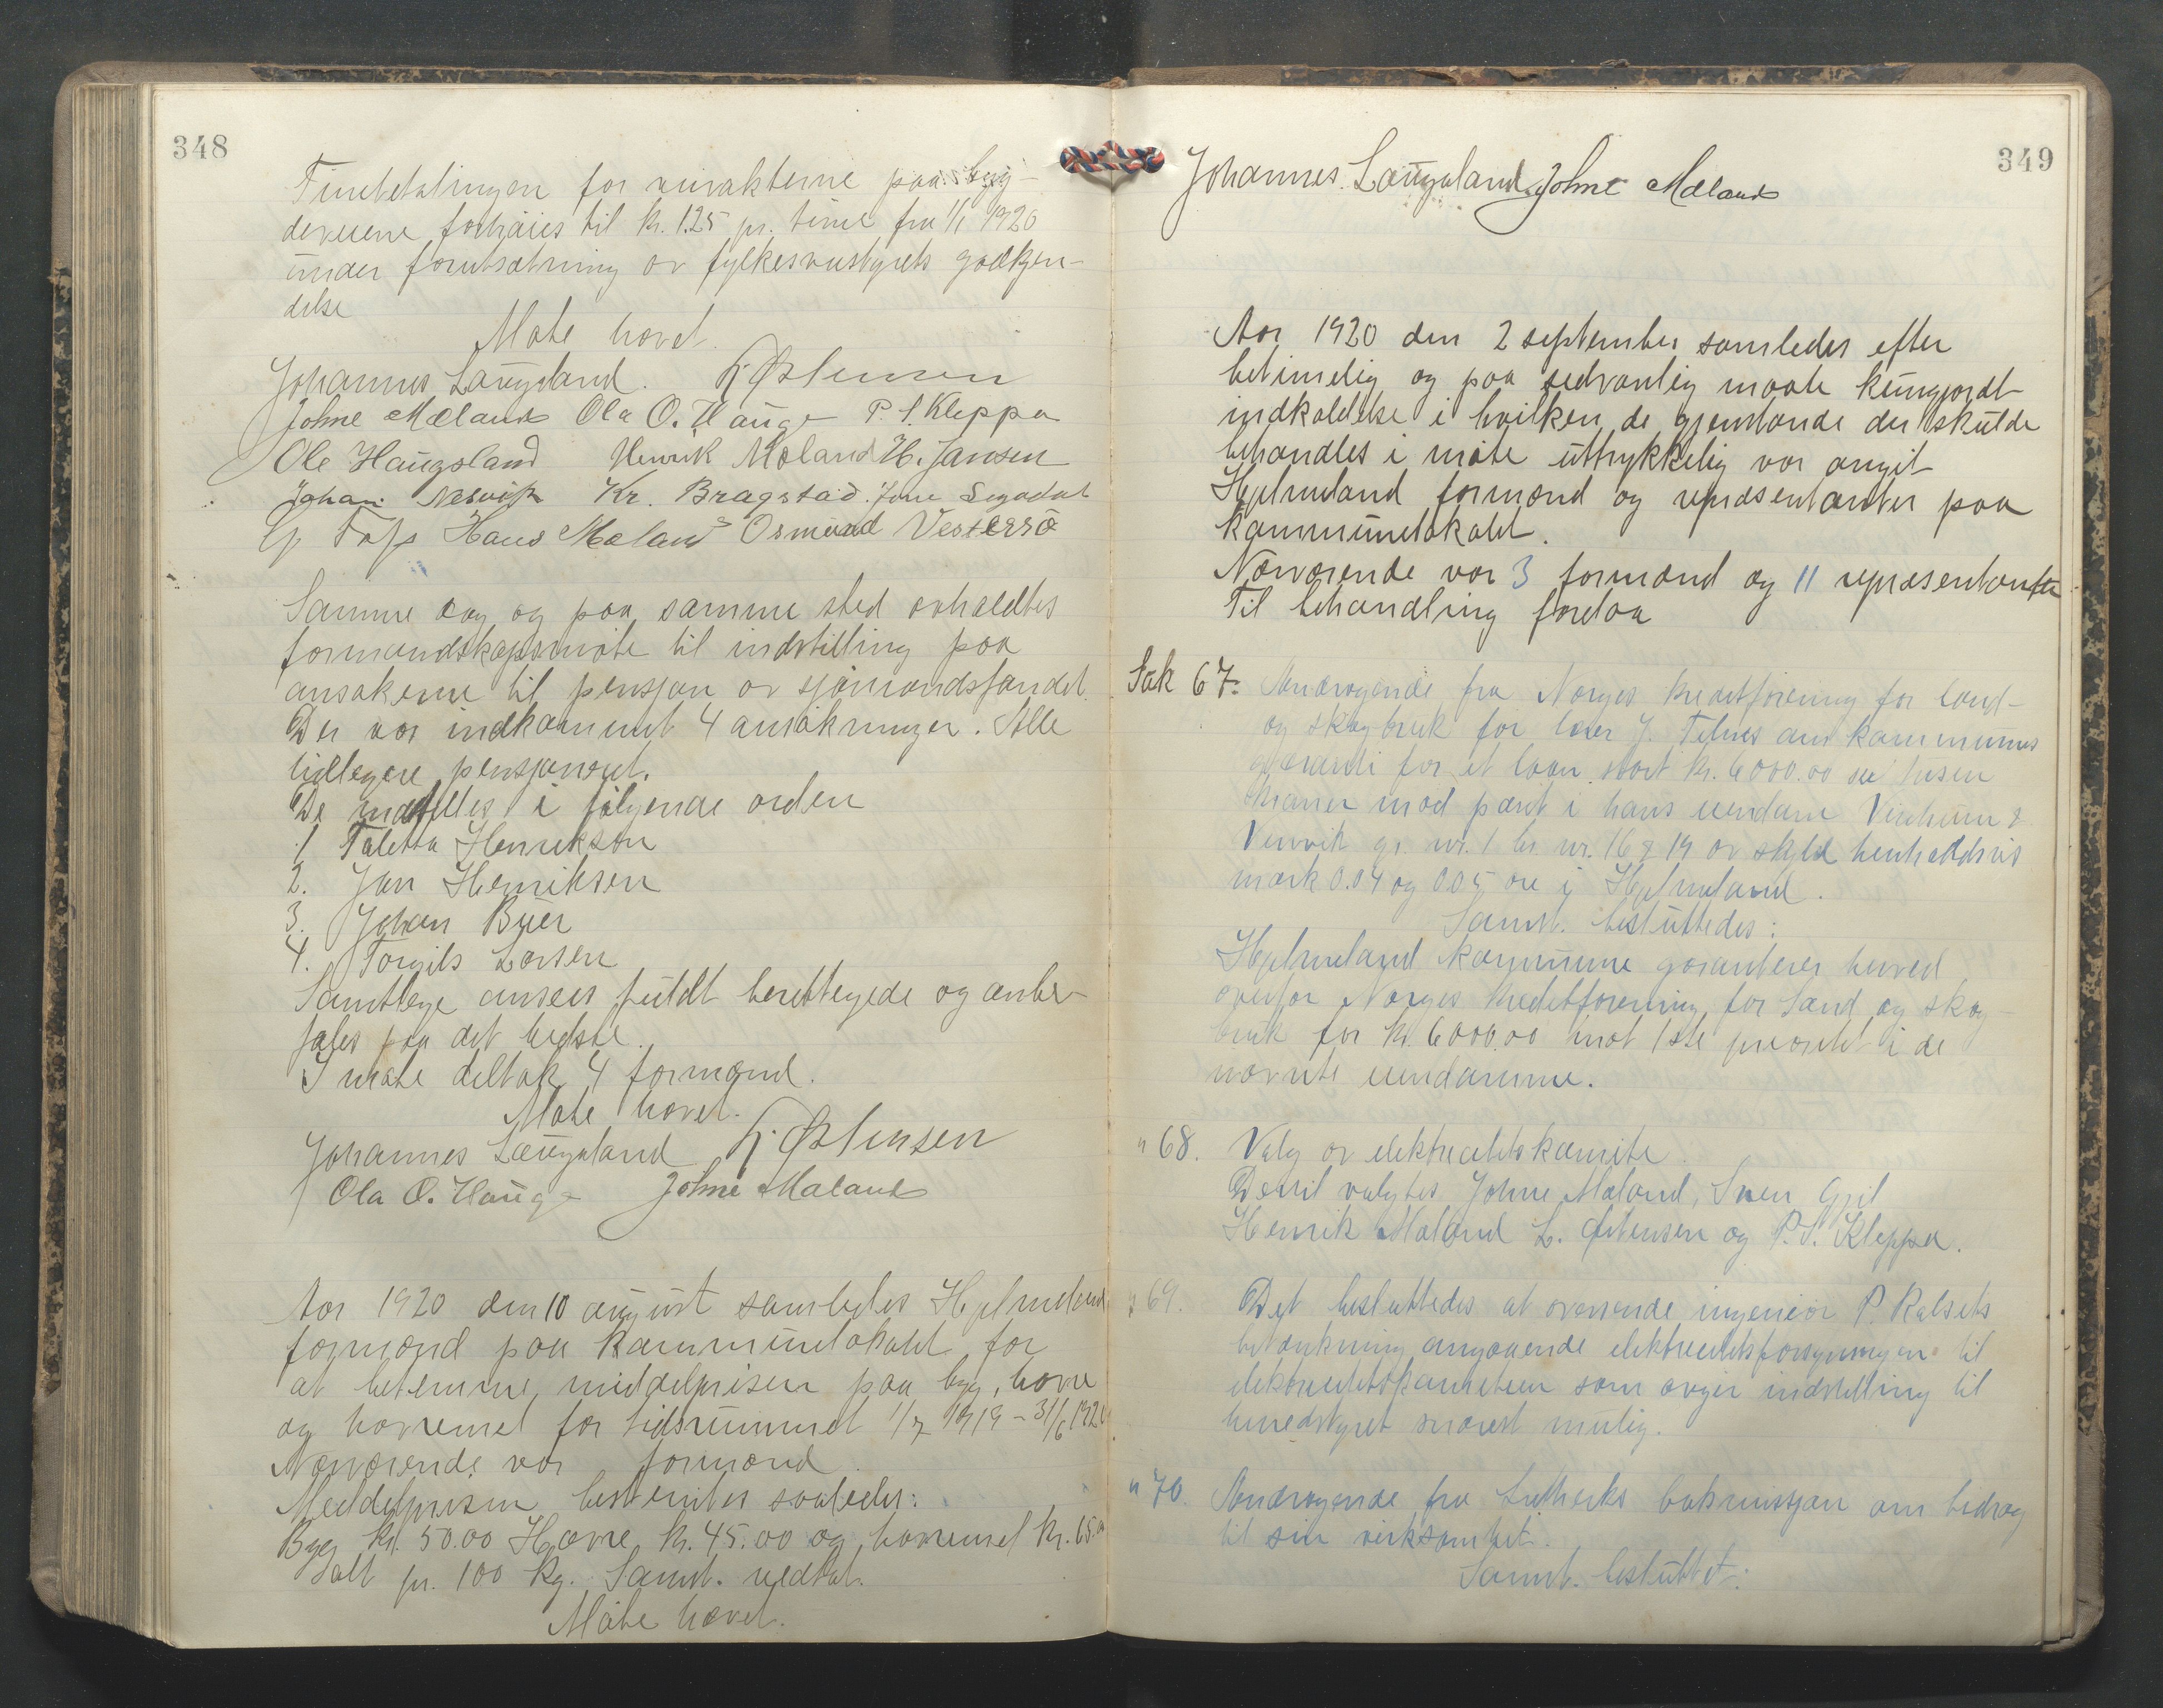 348
Timebetalingen for                 paa byg-
deveiene forhøies til kr. 1.25 pr. time fra 1/1 1920
under forutsætning av fylkesveistyrets godkjen-
delse
Møte hævet.
Johannes Laugaland. K. Østensen
Johne Mæland Ola O. Hauge P. S. Kleppa
Ole Haugsland Henrik Mæland H. Jansen
Johan Nesvik Kr. Bragstad. Jone Segadal
Hans Mæland Osmund Vestersø
Samme dag og paa samme sted avholdtes
formandskapsmøte til indstilling paa
ansøkerne til pensjon av sjømandsfondet.
Der var indkommet 4 ansøkninger. Alle
tidligere pensjonert.
De indstilles i følgende orden
1 Taletta Henrikson
2. Jan Henriksen
3. Johan Buer
4. Torgils Larsen
Samtlige ansees fuldt berettigede og anbe-
fales paa det bedste.
I møte deltok 4 formænd.
Møte hævet.
Johannes Laugaland K. Østensen
Ola O. Hauge Johne Mæland
Aar 1920 den 10 august samledes Hjelmeland
formænd paa kommunelokalet for
at bestemme middelprisen paa byg, havre
og havremel for tidsrummet 1/7 1919 - 31/6 1920.
Nærværende var formænd.
Middelprisen bestemtes saaledes:
Byg kr. 50.00 Havre kr. 45.00 og havremel kr. 65.00
alt pr. 100 kg. Samst. vedtat.
Møte hævet.
349
Johannes Laugaland Johne Mæland
Aar 1920 den 2 september samledes efter
betimelig og paa sedvanlig maate kungjordt
indkaldelse i hvilken de gjenstande der skulde
behandles i møte uttrykkelig var angit
Hjelmeland formænd og repræsentanter paa
kommunelokalet.
Nærværende var 3 formænd og 11 repræsentanter
Til behandling forelaa
Sak 67. Andragende fra Norges kreditforening for land-
og skogbruk for lærer J. Tytlandsvik om kommunens
garanti for et laan stort kr. 6000.00 seks tusen
kroner mod pant i hans eiendom Vinheim &
Venvik gr. nr. 1 br. nr. 16 & 19 av skyld henholdsvis
mark 0.04 og 0.05 øre i Hjelmeland.
Samst. besluttedes:
Hjelmeland kommune garanterer herved
overfor Norges kreditforening for land og skog-
bruk for kr. 6000.00 mot 1ste prioritet i de
nævnte eiendomme.
" 68. Valg av elektricitetskomite.
Dertil valgtes Johne Mæland, Sven Gjil
Henrik Mæland L. Østensen og P. S. Kleppa.
" 69. Det besluttedes at oversende ingeniør P. Kalsets
betænkning angaaende elektricitetsforsyningen til
elektricitetskomiteen som avgir indstilling til
herredstyret snarest mulig.
" 70. Andragende fra Lutherks bokmissjon om bidrag
til sin virksomhet.
Samst. besluttet: